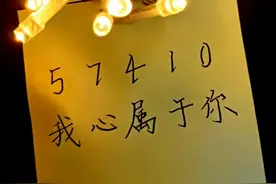 57410
我心属于你